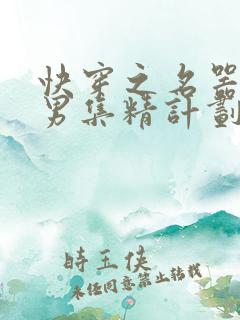 快穿之名器
男集精計劃
時玉俠
未經同意禁止轉載